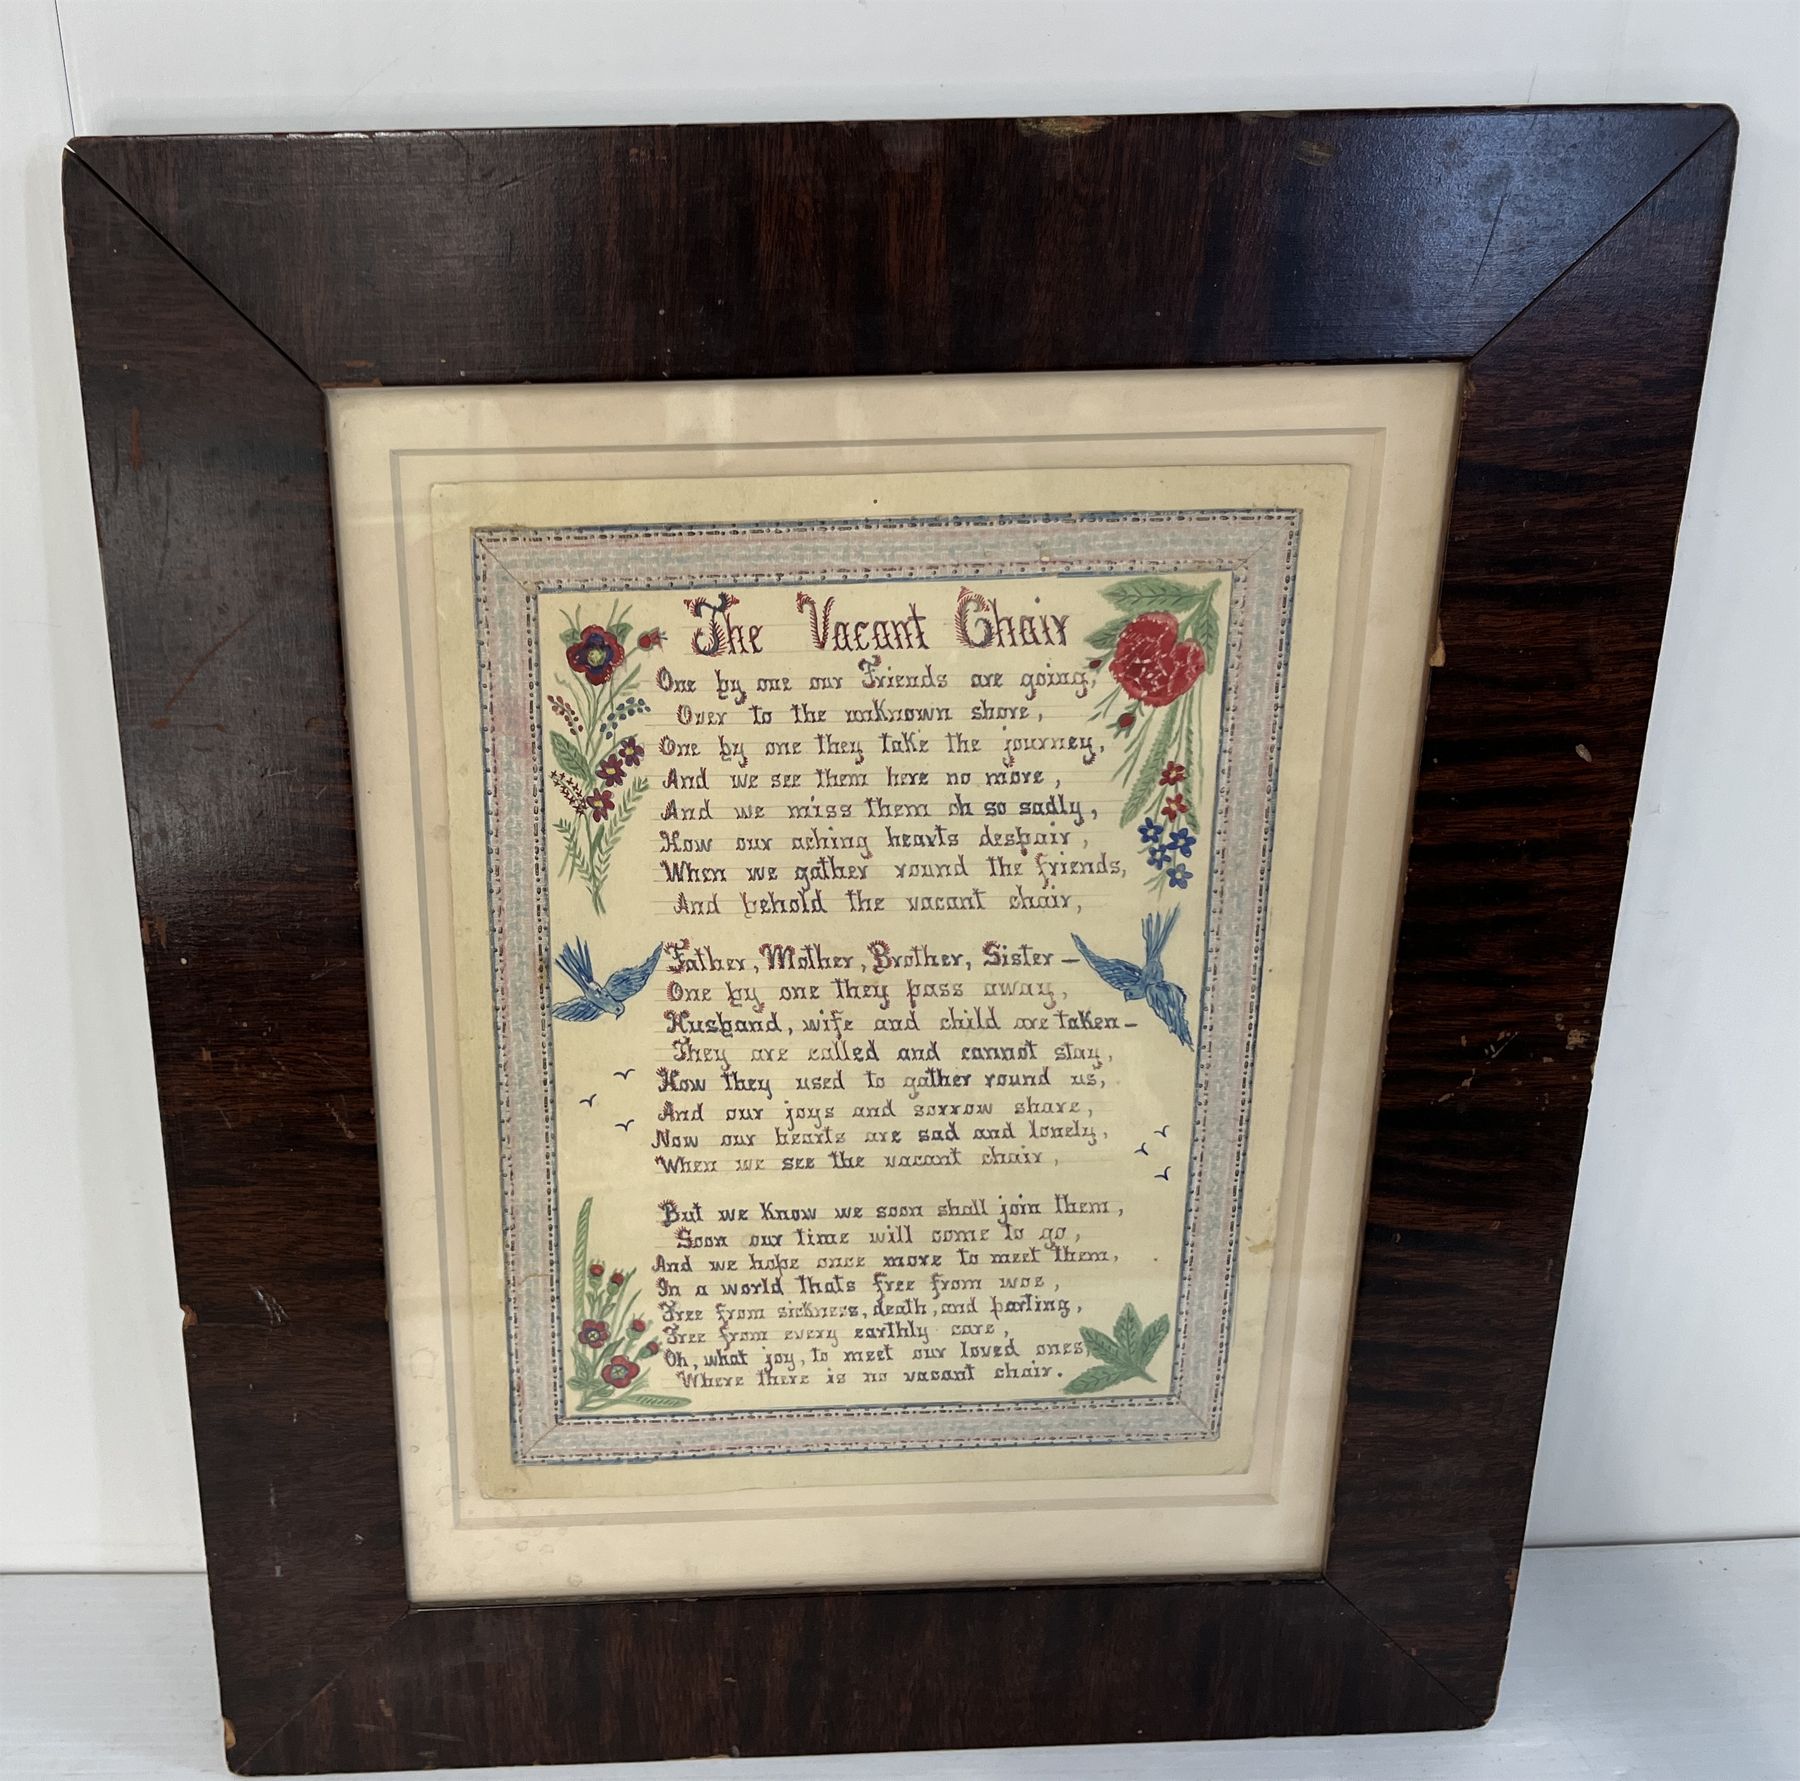 The Vacant Chair
One by one our Friends are going,
Over to the unKnown shore,
One by one they take the journey,
And we see them here no more,
And we miss them oh so sadly,
How our aching hearts despair,
When we gather round the friends,
And behold the vacant chair,
Father, Mother, Brother, Sister—
One by one they pass away,
Husband, wife and child are taken—
They are called and cannot stay,
How they used to gather round us,
And our joys and sorrow share,
Now our hearts are sad and lonely,
When we see the vacant chair,
But we know we soon shall join them,
Soon our time will come to go,
And we hope once more to meet them,
In a world thats free from woe,
Free from sickness, death, and parting,
Free from every earthly care,
Oh, what joy, to meet our loved ones,
Where there is no vacant chair.